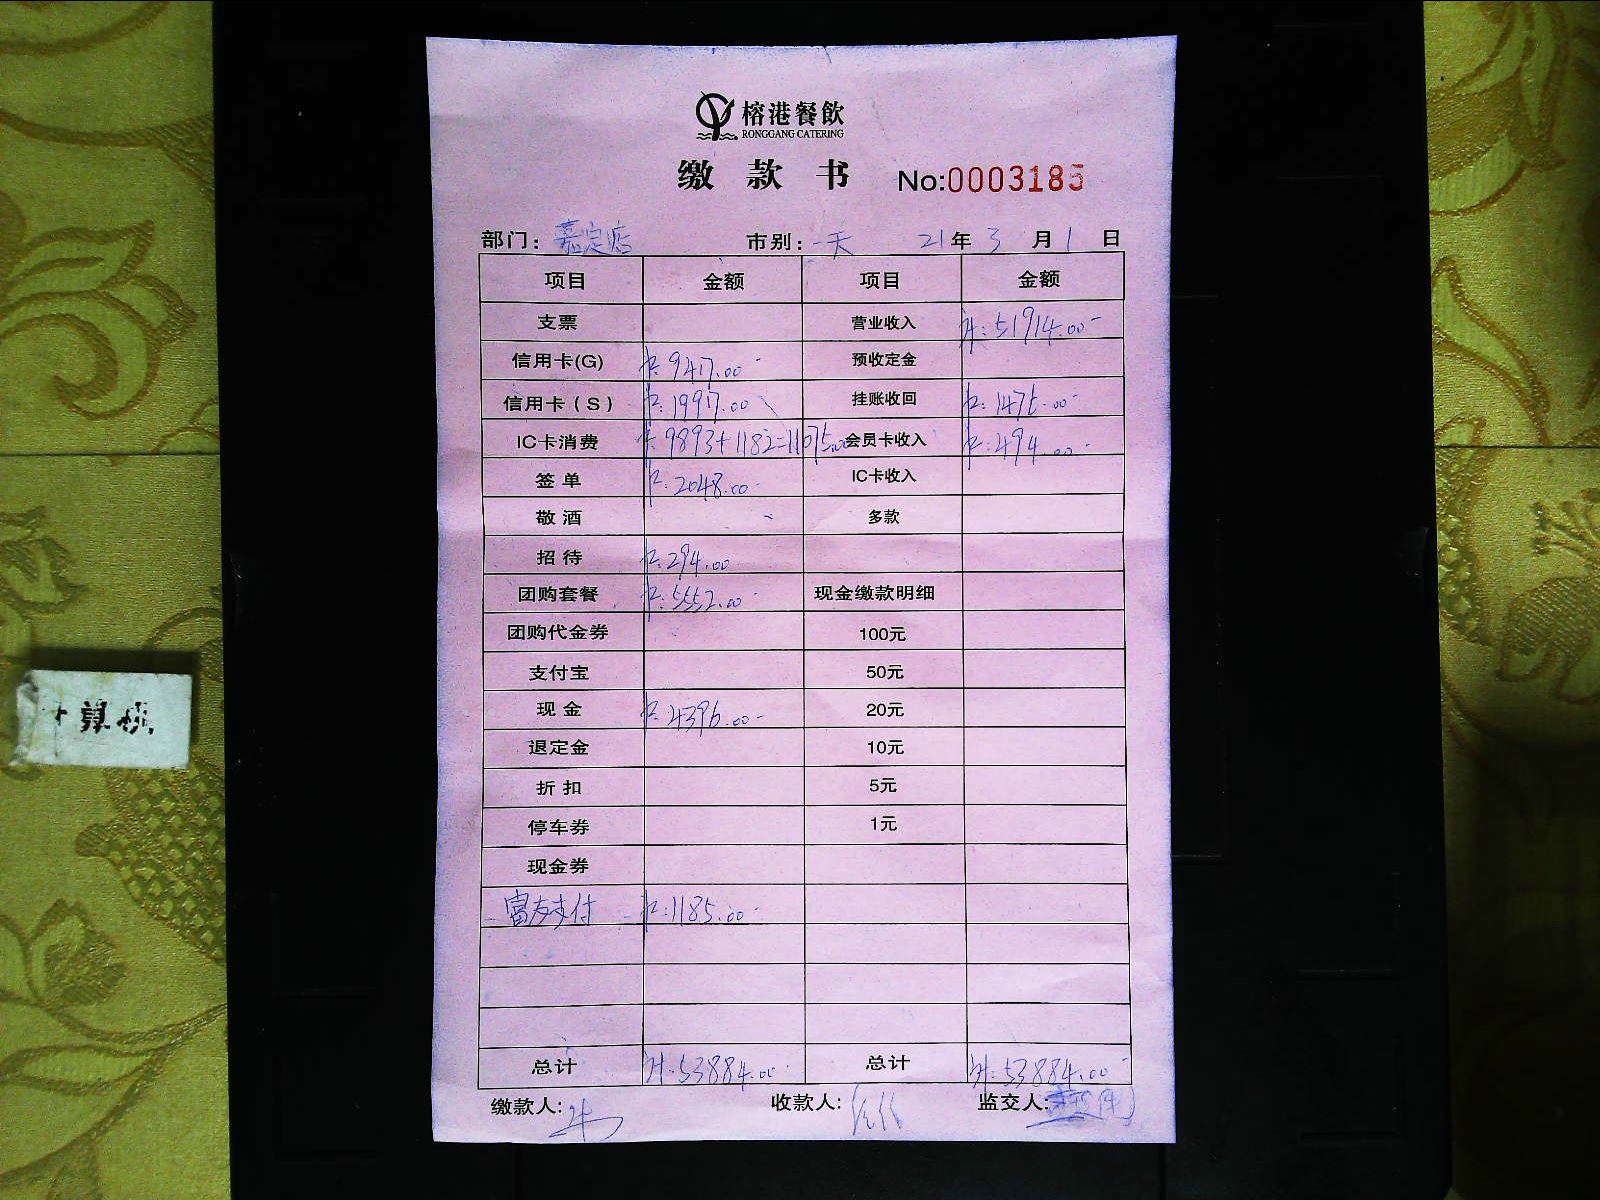 榕港餐飲
RONGGANG CATERING
缴款书 No:0003185
部门: 嘉定店 市别: 一天 21年 3月 1日
项目 金额 项目 金额
支票 营业收入 计:51914.00-
信用卡(G) 卡:9417.00- 预收定金
信用卡(S) 卡:19917.00 挂账收回 卡:1476.00-
IC卡消费 卡:9893+1182=11075.00 会员卡收入 卡:494.00-
签单 卡:2048.00- IC卡收入
敬酒 多款
招待 卡:294.00
团购套餐 卡:5552.00- 现金缴款明细
团购代金券 100元
支付宝 50元
现金 卡:4396.00- 20元
退定金 10元
折扣 5元
停车券 1元
现金券
富友支付 卡:1185.00-
总计 计:53884.00- 总计 计:53884.00-
缴款人: 收款人: 监交人:
计算机